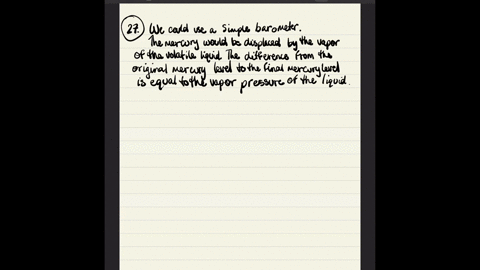 27. We could use a simple barometer.
The mercury would be displaced by the vapor
of the volatile liquid. The difference from the
original mercury level to the final mercury level
is equal to the vapor pressure of the liquid.